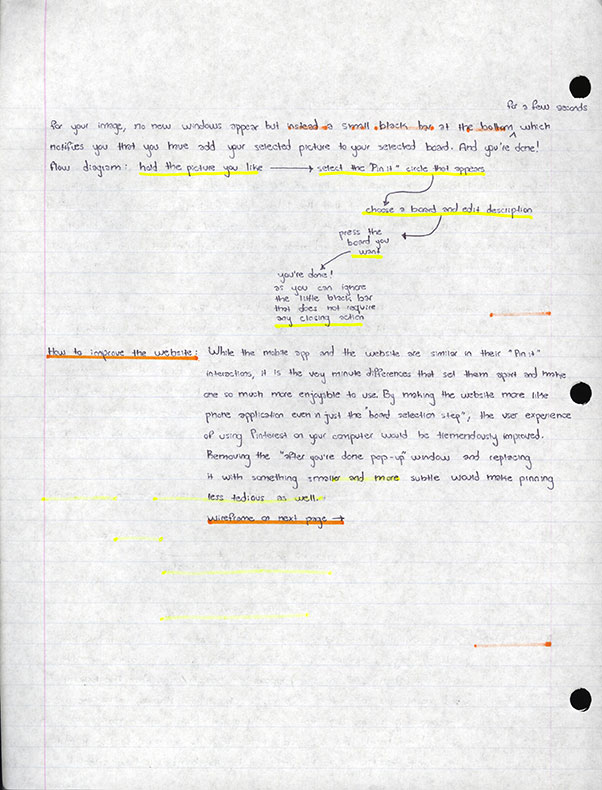 for a few seconds
for your image, no new windows appear but instead a small black bar at the bottom ^ which
notifies you that you have add your selected picture to your selected board. And you're done!
flow diagram: hold the picture you like → select the "Pin it" circle that appears
choose a board and edit description
press the
board you
want
you're done!
as you can ignore
the little black bar
that does not require
any closing action
How to improve the website: While the mobile app and the website are similar in their "Pin it"
interactions, it is the very minute differences that set them apart and make
one so much more enjoyable to use. By making the website more like
phone application even n just the "board selection step", the user experience
of using Pinterest on your computer would be tremendously improved.
Removing the "after you're done pop-up" window and replacing
it with something smaller and more subtle would make pinning
less tedious as well.
Wireframe on next page →